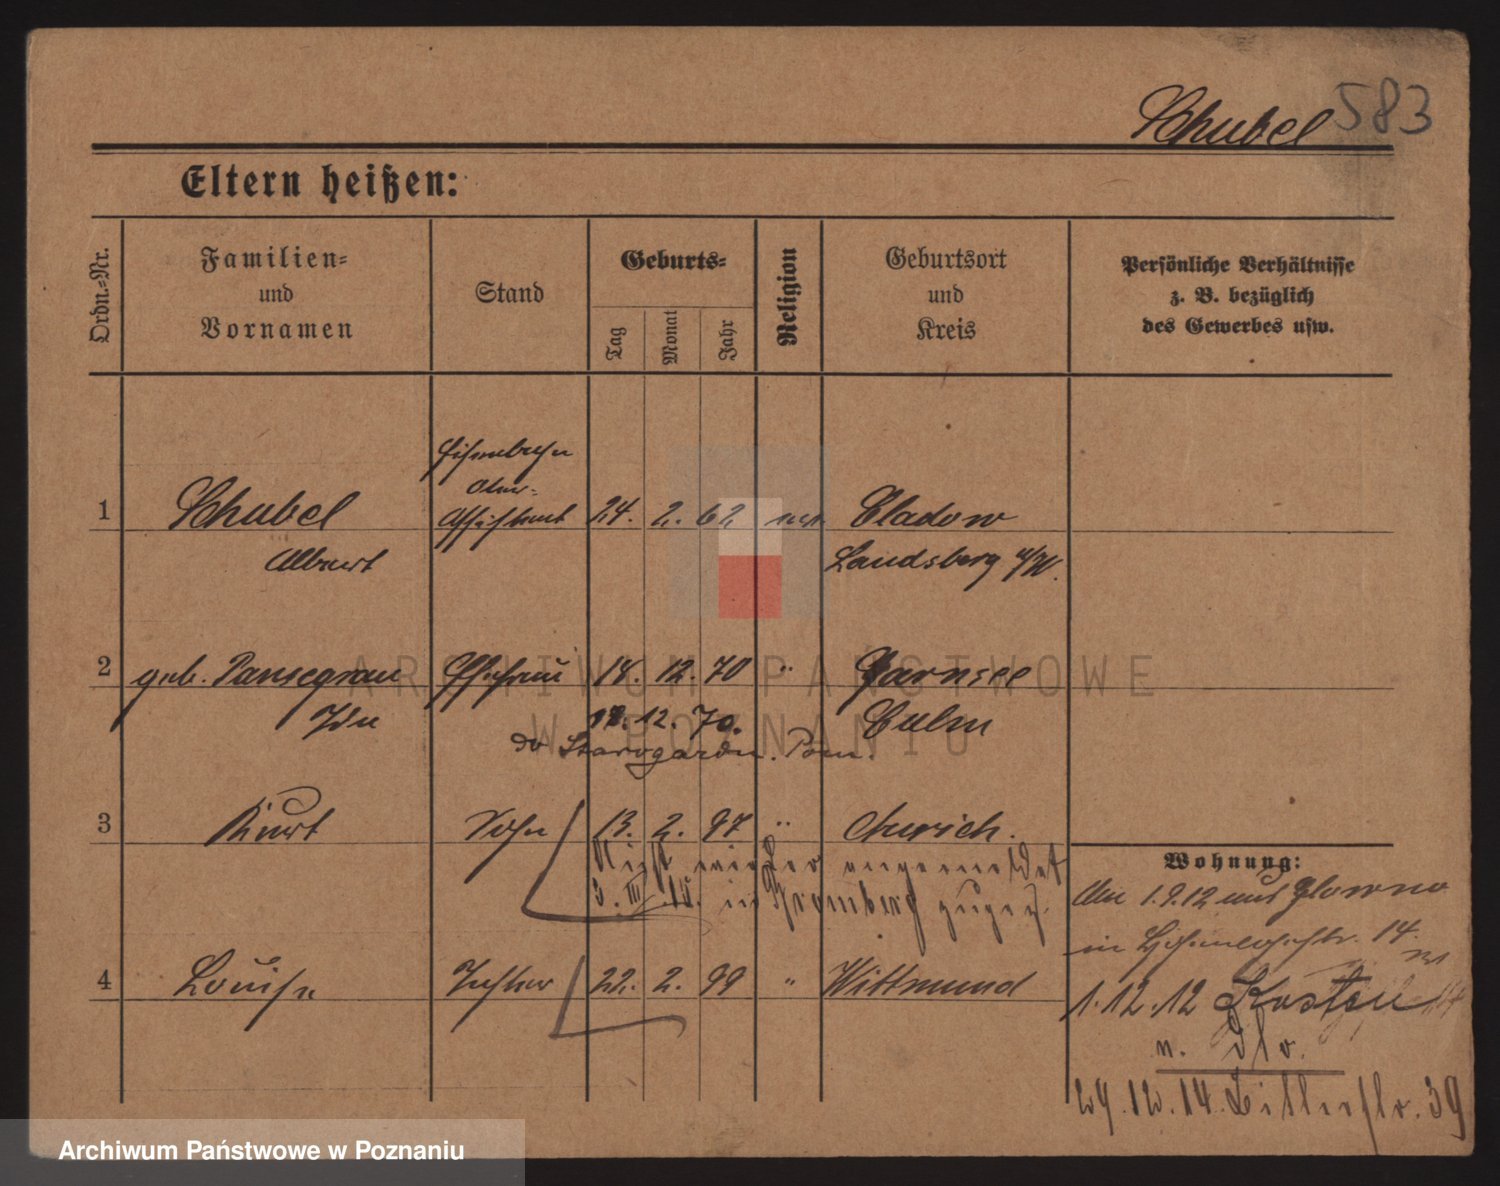 Schubel 583
Eltern heißen:
Ordn.-Nr.
Familien-
und
Vornamen
Stand
Geburts-
Tag
Monat
Jahr
Religion
Geburtsort
und
Kreis
Persönliche Verhältnisse
z. B. bezüglich
des Gewerbes usw.
Eisenbahn
Ober-
1 Schubel Assistent 24. 2. 62 ev. Cladow
Albert Landsberg a/W.
2 geb. Pansegrau Ehefrau 18. 12. 70 " Garnsee
Ida 17. 12. 70. Culm
Stargard i. Pom.
3 Kurt Sohn 13. 2. 97 " Aurich.
Nicht wieder angemeldet
3. III. 15. in Bromberg zugez.
Wohnung:
Am 1.9.12 aus Glowno
in Hohenlohestr. 14.
4 Louise Tochter 22. 2. 99 " Wittmund
1.12.12 Kosten
n. Glo.
29.12.14. Bitterstr. 39
ARCHIWUM PAŃSTWOWE
W POZNANIU
Archiwum Państwowe w Poznaniu